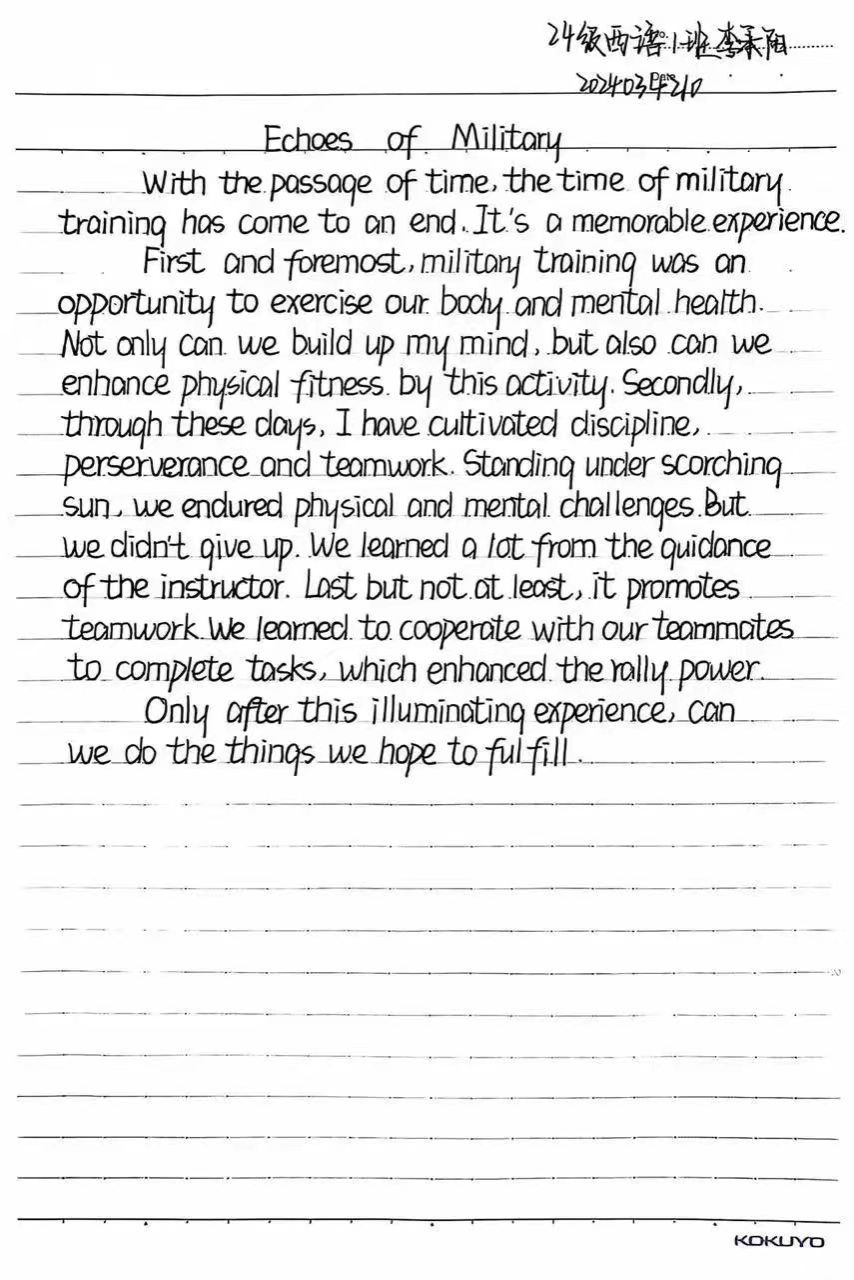 24级西语1班李采阳
2024034210
Echoes of Military
With the passage of time, the time of military
training has come to an end. It's a memorable experience.
First and foremost, military training was an
opportunity to exercise our body and mental health.
Not only can we build up my mind, but also can we
enhance physical fitness by this activity. Secondly,
through these days, I have cultivated discipline,
perserverance and teamwork. Standing under scorching
sun, we endured physical and mental challenges. But
we didn't give up. We learned a lot from the guidance
of the instructor. Last but not at least, it promotes
teamwork. We learned to cooperate with our teammates
to complete tasks, which enhanced the rally power.
Only after this illuminating experience, can
we do the things we hope to fulfill.
KOKUYO